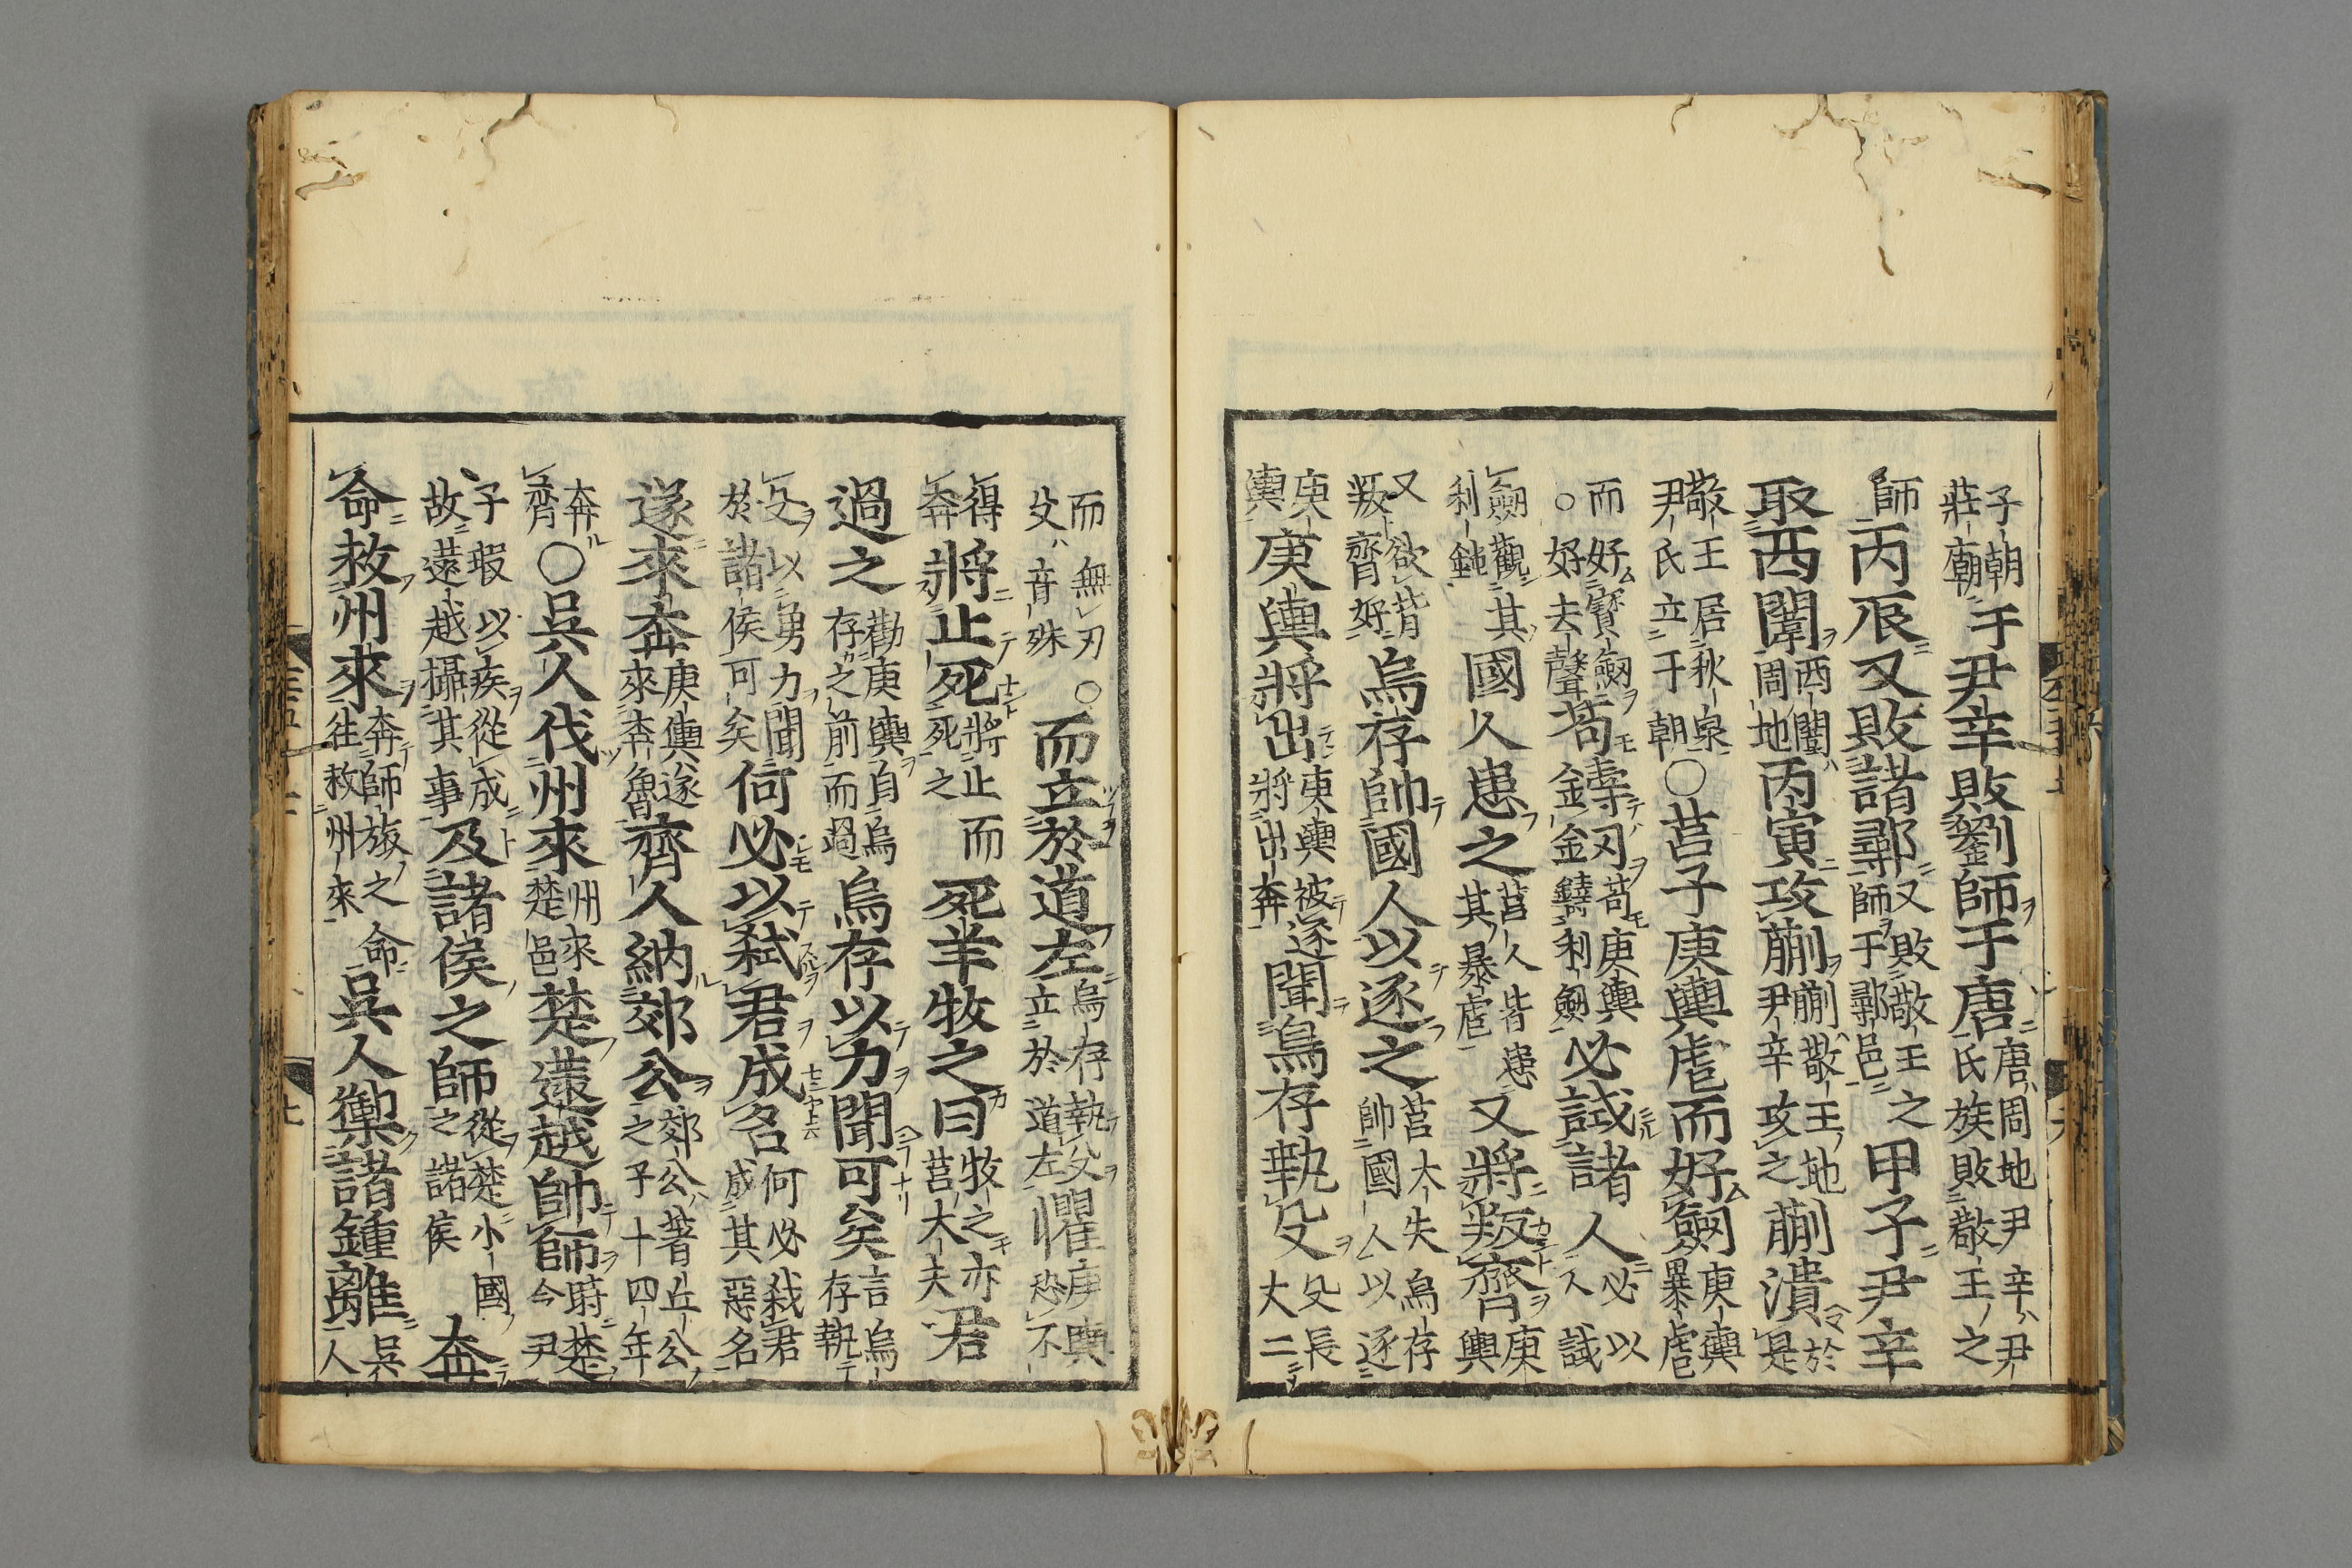 子朝莊廟于尹辛敗劉師于唐唐周地尹辛尹氏族敗敬王之
師丙辰又敗諸鄩又敗敬王之師于鄩邑甲子尹辛
取西闈西闈周地丙寅攻蒯蒯敬王地尹辛攻之蒯潰於是
敬王居秋泉尹氏立于朝○莒子庚輿虐而好劒庚輿暴虐
而好寳劒○好去聲苟鑄刃苟庚輿鑄金鐃利劒必試諸人必以試人
劒觀其利鈍國人患之莒人皆患其暴虐又將叛齊庚輿
又欲背叛齊好烏存帥國人以逐之莒大失烏存帥國人以逐
庚輿庚輿將出庚輿被逐將出奔聞烏存執殳殳長丈二
而無刃○殳音殊而立於道左烏存執殳立於道左懼庚輿恐不
得奔將止死將止而死之死羊牧之曰牧之亦莒大夫君
過之勸庚輿自烏存之前而過烏存以力聞可矣言烏存執
殳以勇力聞於諸侯可矣何必以弑君成名何必弑君成其惡名
遂來奔庚輿遂來奔魯齊人納郊公郊公著丘公之子十四年
奔齊○吳人伐州來州來楚邑楚薳越帥師時楚令尹
子瑕以疾從戎故薳越攝其事及諸侯之師從楚小國之諸侯奔
命救州來奔師旅之命往救州來吳人禦諸鍾離吳人